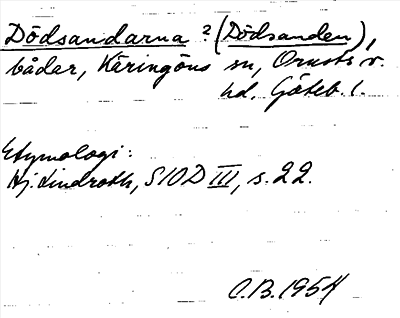 Dödsandarna ? (Dödsanden),
bådar, Käringöns sn, Orusts v.
hd, Göteb. l.
Etymologi:
Hj. Lindroth, SIOD III, s. 22.
C.B. 1954